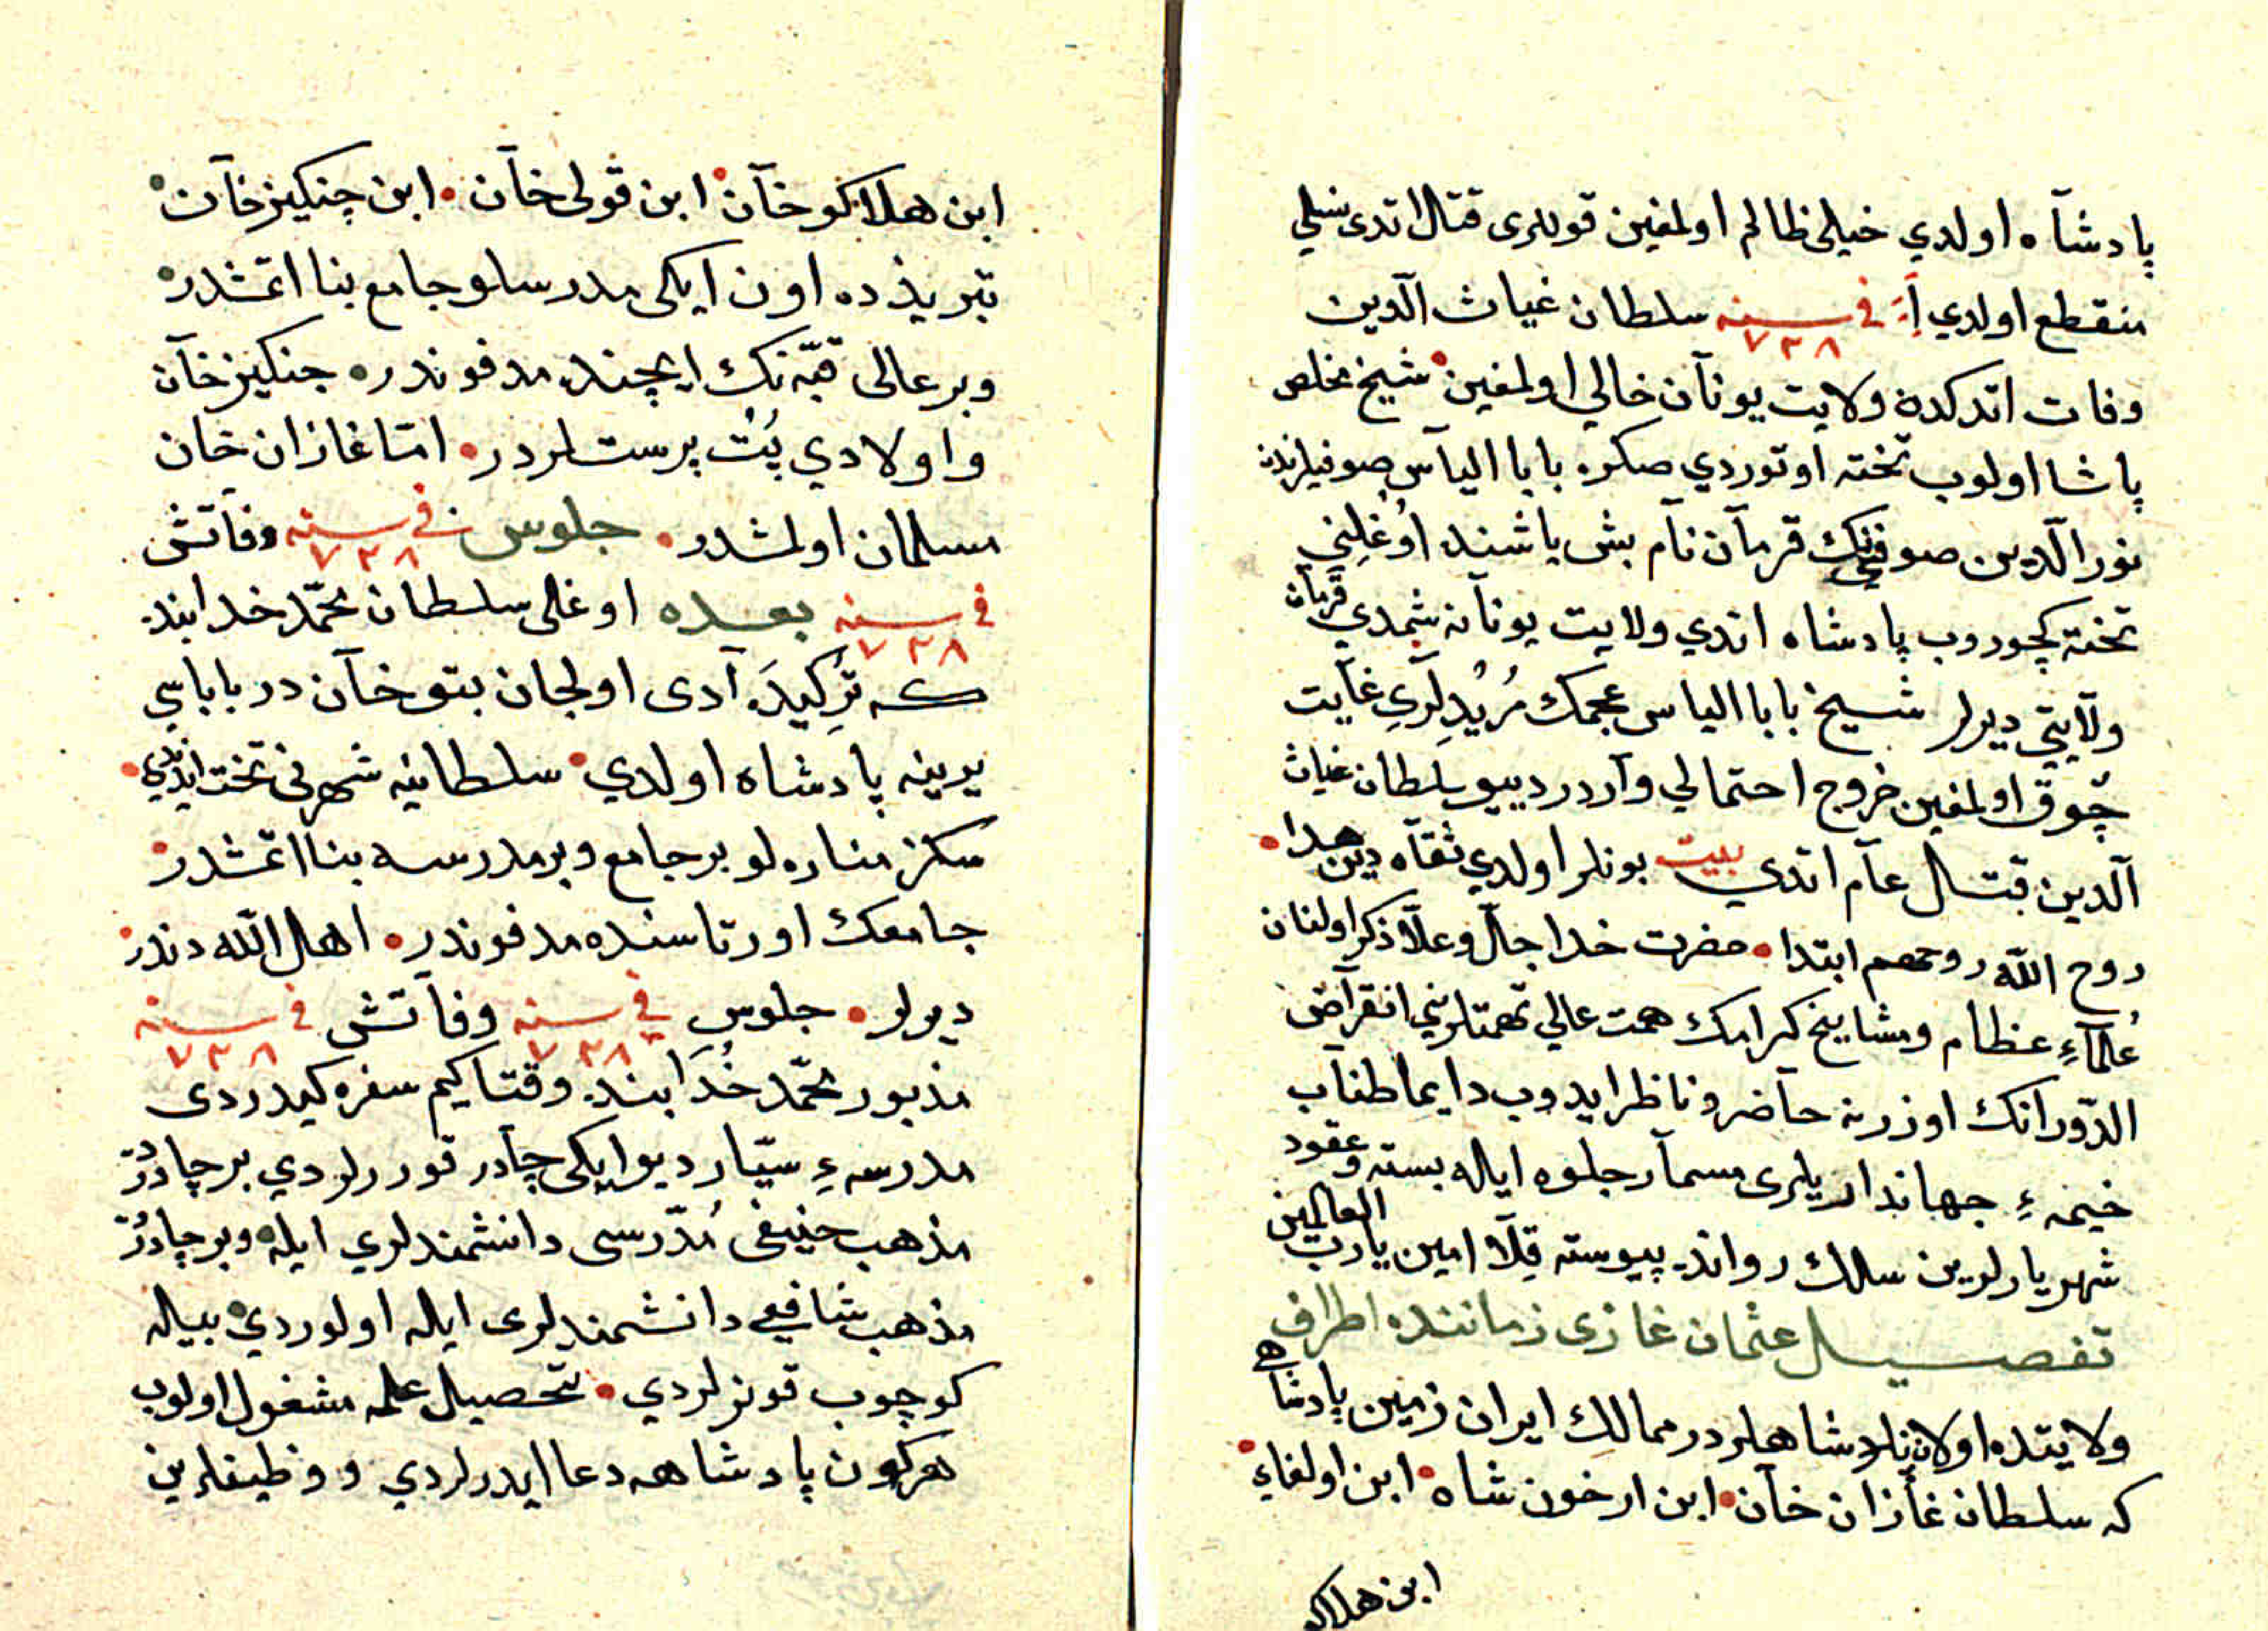 پادشآه اولدي خيلى ظالم اولمغين قوللرى قتال اتدى نسلي
منقطع اولدي في سنه ٧٢٨ سلطان غياث الدين
وفات اتدكده ولايت يونآن خالي اولمغين شيخ مخلص
پاشا اولوب تخته اوتوردي صكره بابا الياس صوفيلرندن
نور الدين صوفينك قرمآن نآم بش ياشنده اوُغلِني
تخته كچوروب پادشاه اتدي ولايت يونآنه شمدي قرمآن
ولآيتي ديرلر شيخ بابا الياس عجمك مُريُدِلَرِي غآيت
چوق اولمغين خروج احتمالي وآردر دييو سلطان غياث
الدين قتال عآم اتدي بيت بونلر اولدي ثقآه دين هدا
روح الله روحهم ابتدا حضرت خدا جلّ وعلّا ذكر اولنان
عُلمآءِ عظام ومشايخ كرامك همت عالي نهمتلريني انقرآض
الدّورانك اوزرنه حآضر وناظر ايدوب دايما طنآب
خيمهءِ جهاندارلرى مسمآر جلوه ايله بسته وعقود
شهريارلرين سلك رواند پيوسته قِلآ امين يا رب العالمين
تفصيل عثمان غازى زماننده اطراف
ولايتده اولان پادشاهلردر ممالك ايران زمين پادشاهي
كه سلطان غآزان خآن ابن ارخون شاه ابن اولغاءِ
ابن هلاكو
ابن هلاكو خآن ابن قولى خآن ابن چنكيز خآن
تبريذده اون ايكى مدرسلو جامع بنا اتمشدر
وبر عالى قبّه نك ايچنده مدفوندر جنكيز خآن
واولادي بُتْ پرستلردر امّا غازان خان
مسلمان اولمشدر جلوس في سنه ٧٢٨ وفآتش
في سنه ٧٢٨ بعده اوغلى سلطان محمّد خدابنده
كه تُركيدَه آدى اولجان بتو خآن در باباسي
يرينه پادشاه اولدي سلطانيه شهرنى تخت ايدندي
سكز مناره لو بر جامع وبر مدرسه بنا اتمشدر
جامعك اورتاسنده مدفوندر اهل الله دندر
ديرلر جلوس في سنه ٧٢٨ وفآتش في سنه ٧٢٨
مذبور محمّد خُدَابنده وقتاكيم سفره كيدردى
مدرسهءِ سيّار ديو ايكى چآدر قوررلردي بر چادرُ
مذهب حنيفى مُدّرسى دانشمندلري ايله وبر چادرُ
مذهب شافعي دانشمندلرى ايله اولوردي بيله
كوچوب قونرلردي تحصيل علمه مشغول اولوب
هركون پادشاهه دعا ايدرلردي ووظيفلرين